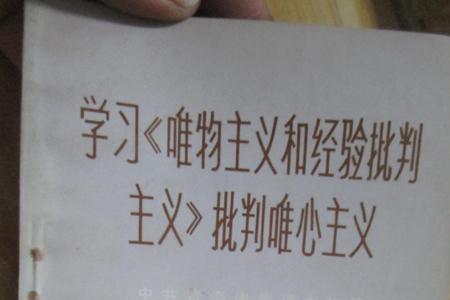 学习《唯物主义和经验批判
主义》批判唯心主义